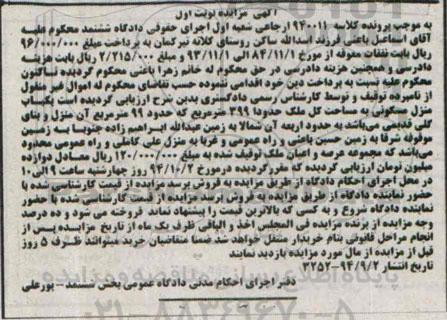 آگهی مزایده نوبت اول
به موجب پرونده کلاسه 940011 ارجاعی شعبه اول اجرای حقوقی دادگاه ششتمد محکوم علیه
آقای اسماعیل باعثی فرزند اسدالله ساکن روستای کلاته تیرکمان به پرداخت مبلغ 96/000/000
ریال بابت نفقات معوقه از مورخ 84/11/1 الی 93/11/1 و مبلغ 2/215/000 ریال بابت هزینه
دادرسی و همچنین هزینه دادرسی در حق محکوم له خانم زهرا باعثی محکوم گردیده تاکنون
محکوم علیه نسبت به پرداخت دین خود اقدامی ننموده حسب تقاضای محکوم له اموال غیر منقول
از نامبرده توقیف و توسط کارشناس رسمی دادگستری بدین شرح ارزیابی گردیده است یکباب
منزل مسکونی به مساحت کل ملک حدودا 399 مترمربع که حدود 99 مترمربع آن منزل و بنای
گلی قدیمی می‌باشد به حدود اربعه آن شمالا به زمین عبدالله ابراهیم زاده جنوبا به زمین
موقوفه شرقا به زمین حسین باعثی و راه عمومی و غربا به منزل علی کاملی و راه عمومی محدود
می‌باشد که مجموعه عرصه و اعیان ملک توقیف شده به مبلغ 120/000/000 ریال معادل دوازده
میلیون تومان ارزیابی گردیده که مقرر گردیده درمورخ 94/10/2 روز چهارشنبه ساعت 9 الی 10
در محل اجرای احکام دادگاه از طریق مزایده به فروش برسد مزایده از قیمت کارشناسی شده با
حضور نماینده دادگاه از طریق مزایده به فروش برسد مزایده از قیمت کارشناسی شده با حضور
نماینده دادگاه شروع و به کسی که بالاترین قیمت را پیشنهاد نماید فروخته می شود و ده درصد
وجه مزایده از برنده مزایده فی المجلس اخذ و الباقی ظرف یک ماه از تاریخ مزایده پس از
انجام مراحل قانونی بنام خریدار منتقل خواهد شد ضمنا متقاضیان خرید میتوانند ظرف 5 روز
قبل از مزایده از مال مورد مزایده بازدید نمایند
تاریخ انتشار 94/9/2-3252
دفتر اجرای احکام مدنی دادگاه عمومی بخش ششتمد - پورعلی
021-88349670-5